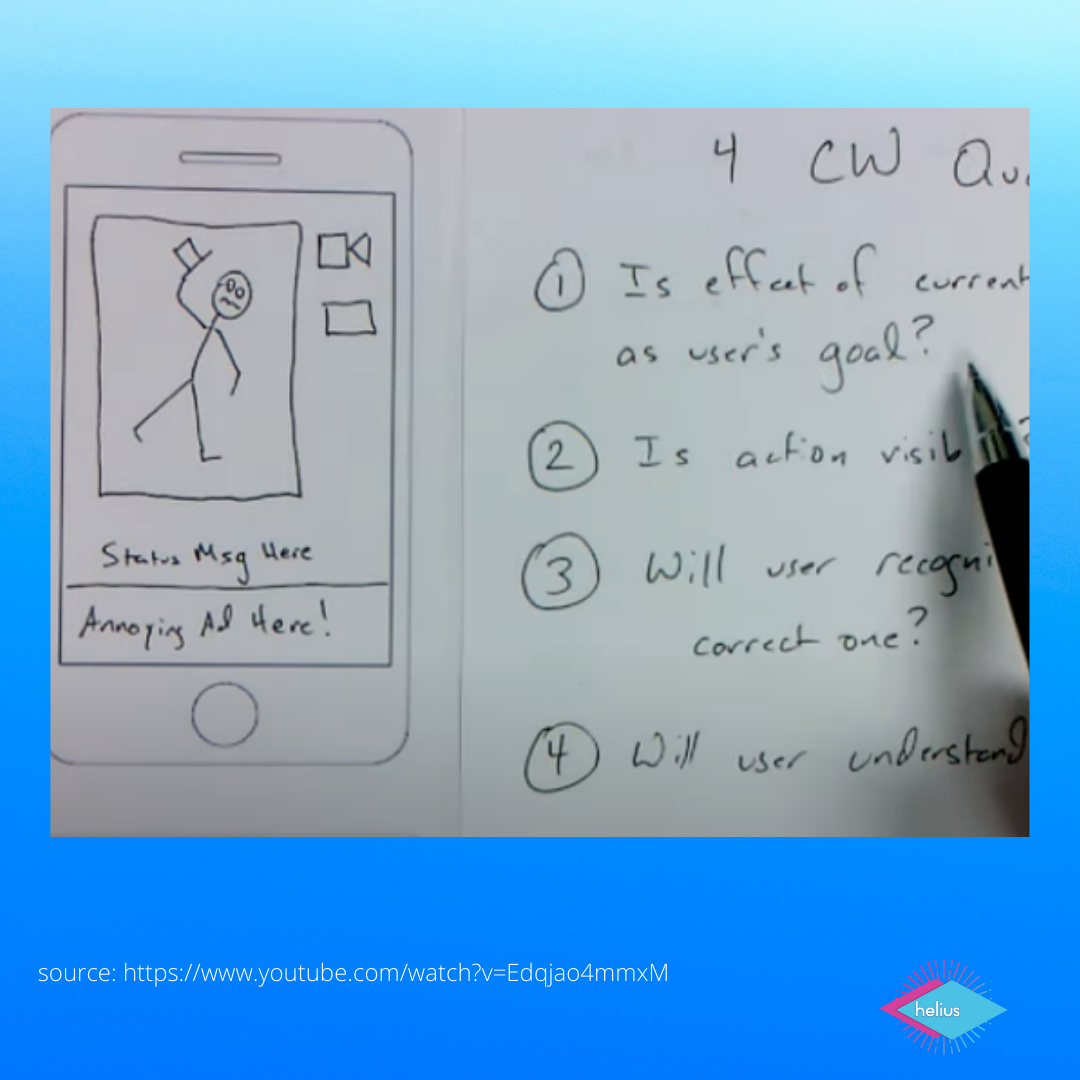 Status Msg Here
Annoying Ad Here!
4 CW
1 Is effect of current
as user's goal?
2 Is action
3 Will user
correct one?
4 Will user understand
source: https://www.youtube.com/watch?v=Edqjao4mmxM
helius